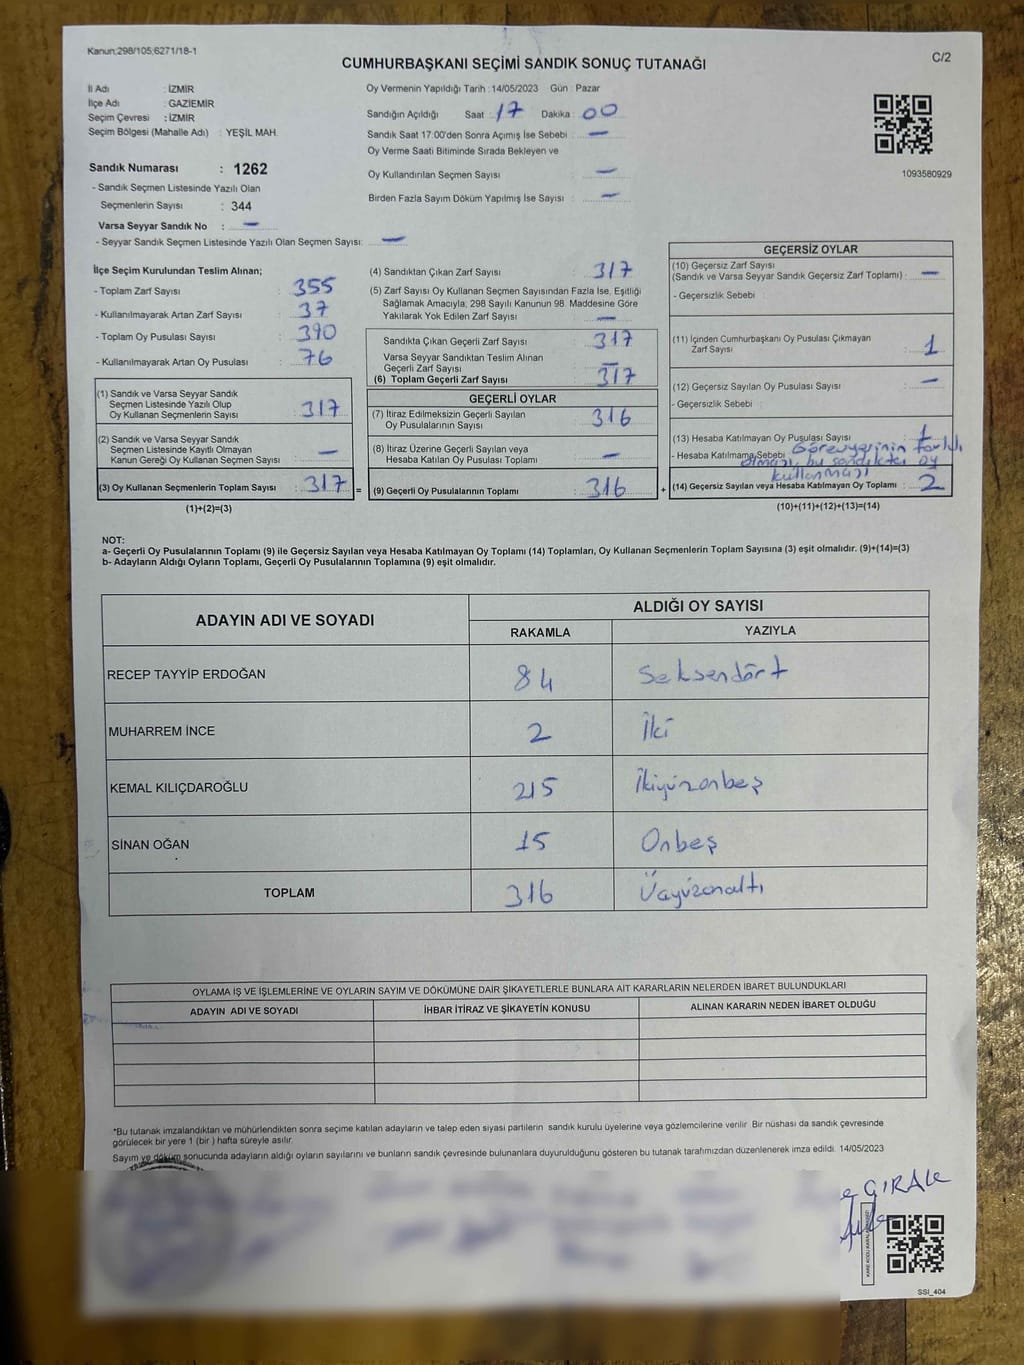 Kanun:298/105;6271/18-1
C/2
CUMHURBAŞKANI SEÇİMİ SANDIK SONUÇ TUTANAĞI
İl Adı : İZMİR
İlçe Adı : GAZİEMİR
Seçim Çevresi : İZMİR
Seçim Bölgesi (Mahalle Adı) : YEŞİL MAH.
Sandık Numarası : 1262
- Sandık Seçmen Listesinde Yazılı Olan
Seçmenlerin Sayısı : 344
Varsa Seyyar Sandık No : —
- Seyyar Sandık Seçmen Listesinde Yazılı Olan Seçmen Sayısı: —
Oy Vermenin Yapıldığı Tarih :14/05/2023 Gün : Pazar
Sandığın Açıldığı Saat : 17 Dakika : 00
Sandık Saat 17:00'den Sonra Açımış İse Sebebi : —
Oy Verme Saati Bitiminde Sırada Bekleyen ve
Oy Kullandırılan Seçmen Sayısı : —
Birden Fazla Sayım Döküm Yapılmış İse Sayısı : —
1093580929
İlçe Seçim Kurulundan Teslim Alınan;
- Toplam Zarf Sayısı : 355
- Kullanılmayarak Artan Zarf Sayısı : 37
- Toplam Oy Pusulası Sayısı : 390
- Kullanılmayarak Artan Oy Pusulası : 76
(1) Sandık ve Varsa Seyyar Sandık
Seçmen Listesinde Yazılı Olup
Oy Kullanan Seçmenlerin Sayısı : 317
(2) Sandık ve Varsa Seyyar Sandık
Seçmen Listesinde Kayıtlı Olmayan
Kanun Gereği Oy Kullanan Seçmen Sayısı : —
(3) Oy Kullanan Seçmenlerin Toplam Sayısı : 317 =
(1)+(2)=(3)
(4) Sandıktan Çıkan Zarf Sayısı : 317
(5) Zarf Sayısı Oy Kullanan Seçmen Sayısından Fazla İse, Eşitliği
Sağlamak Amacıyla, 298 Sayılı Kanunun 98. Maddesine Göre
Yakılarak Yok Edilen Zarf Sayısı : —
Sandıkta Çıkan Geçerli Zarf Sayısı : 317
Varsa Seyyar Sandıktan Teslim Alınan
Geçerli Zarf Sayısı : —
(6) Toplam Geçerli Zarf Sayısı : 317
GEÇERLİ OYLAR
(7) İtiraz Edilmeksizin Geçerli Sayılan
Oy Pusulalarının Sayısı : 316
(8) İtiraz Üzerine Geçerli Sayılan veya
Hesaba Katılan Oy Pusulası Toplamı : —
(9) Geçerli Oy Pusulalarının Toplamı : 316 +
GEÇERSİZ OYLAR
(10) Geçersiz Zarf Sayısı
(Sandık ve Varsa Seyyar Sandık Geçersiz Zarf Toplamı) : —
- Geçersizlik Sebebi :
(11) İçinden Cumhurbaşkanı Oy Pusulası Çıkmayan
Zarf Sayısı : 1
(12) Geçersiz Sayılan Oy Pusulası Sayısı : —
- Geçersizlik Sebebi :
(13) Hesaba Katılmayan Oy Pusulası Sayısı : 1
- Hesaba Katılmama Sebebi : Görevyerinin farklı
olması, bu sandıkta oy
kullanması
(14) Geçersiz Sayılan veya Hesaba Katılmayan Oy Toplamı : 2
(10)+(11)+(12)+(13)=(14)
NOT:
a- Geçerli Oy Pusulalarının Toplamı (9) ile Geçersiz Sayılan veya Hesaba Katılmayan Oy Toplamı (14) Toplamları, Oy Kullanan Seçmenlerin Toplam Sayısına (3) eşit olmalıdır. (9)+(14)=(3)
b- Adayların Aldığı Oyların Toplamı, Geçerli Oy Pusulalarının Toplamına (9) eşit olmalıdır.
ADAYIN ADI VE SOYADI
ALDIĞI OY SAYISI
RAKAMLA YAZIYLA
RECEP TAYYİP ERDOĞAN 84 Seksendört
MUHARREM İNCE 2 İki
KEMAL KILIÇDAROĞLU 215 İkiyüzonbeş
SİNAN OĞAN 15 Onbeş
TOPLAM 316 Üçyüzonaltı
OYLAMA İŞ VE İŞLEMLERİNE VE OYLARIN SAYIM VE DÖKÜMÜNE DAİR ŞİKAYETLERLE BUNLARA AİT KARARLARIN NELERDEN İBARET BULUNDUKLARI
ADAYIN ADI VE SOYADI İHBAR İTİRAZ VE ŞİKAYETİN KONUSU ALINAN KARARIN NEDEN İBARET OLDUĞU
*Bu tutanak imzalandıktan ve mühürlendikten sonra seçime katılan adayların ve talep eden siyasi partilerin sandık kurulu üyelerine veya gözlemcilerine verilir. Bir nüshası da sandık çevresinde
görülecek bir yere 1 (bir) hafta süreyle asılır.
Sayım ve döküm sonucunda adayların aldığı oyların sayılarını ve bunların sandık çevresinde bulunanlara duyurulduğunu gösteren bu tutanak tarafımızdan düzenlenerek imza edildi. 14/05/2023
SSI_404